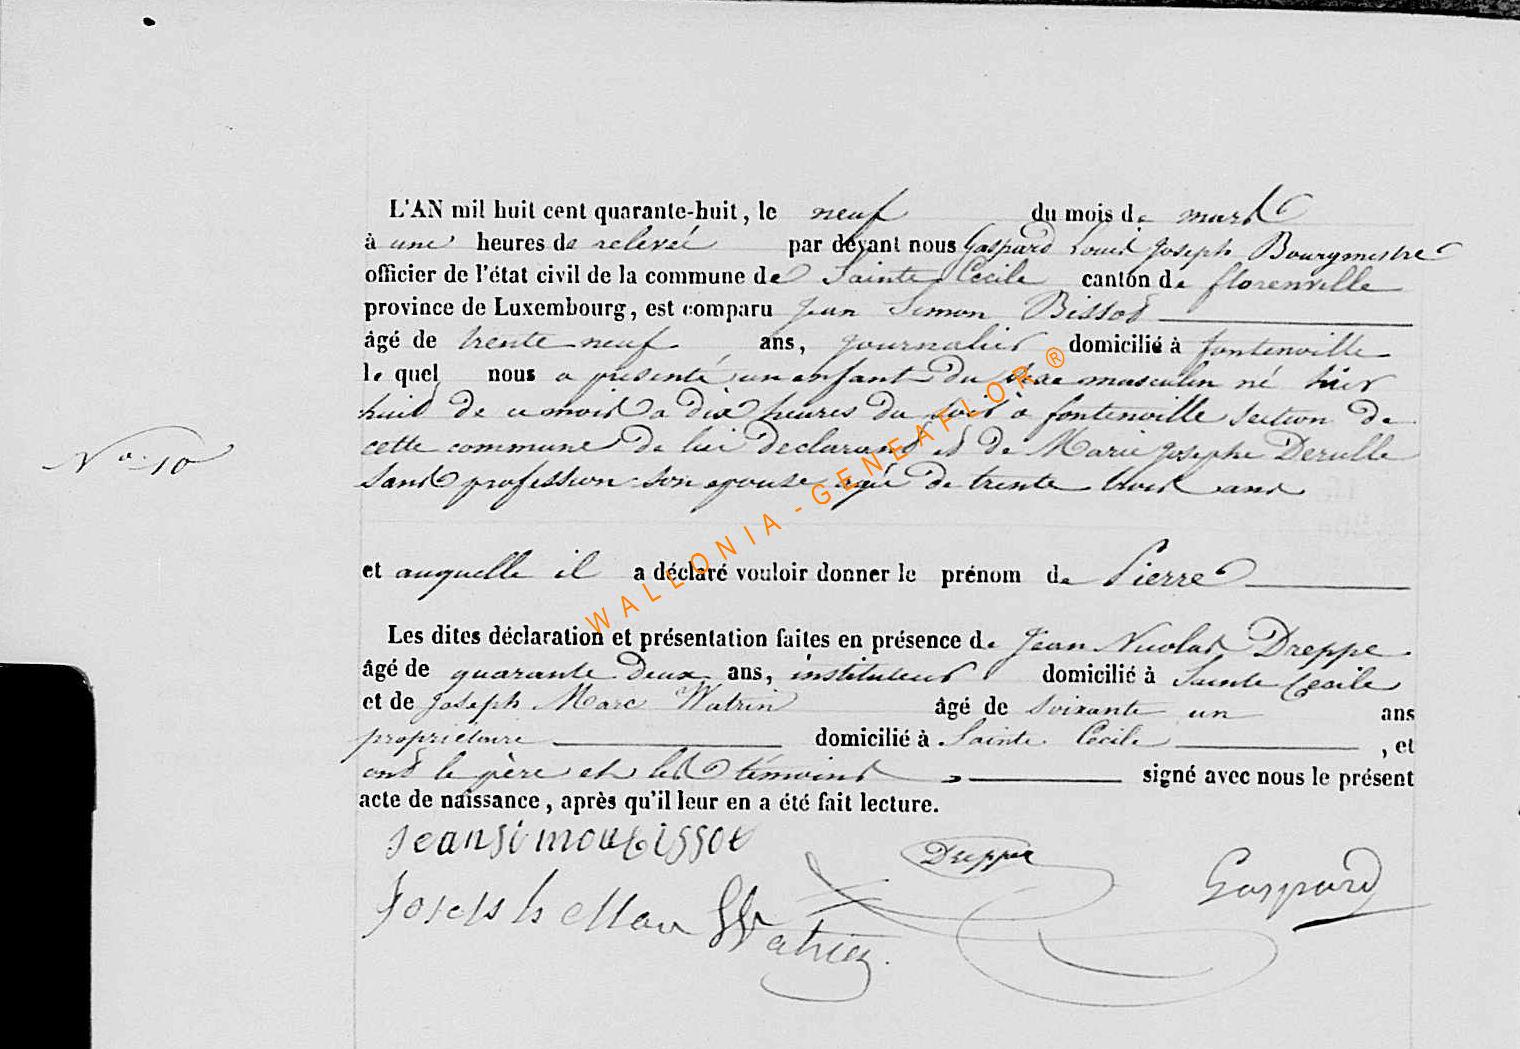 L'AN mil huit cent quarante-huit, le neuf du mois de mars
à une heures de relevée par devant nous Gaspard Louis Joseph Bourgmestre
officier de l'état civil de la commune de Sainte Cécile canton de florenville
province de Luxembourg, est comparu Jean Simon Bissot
âgé de trente neuf ans, journalier domicilié à fontenoille
le quel nous a présenté un enfant du sexe masculin né hier
huit de ce mois a dix heures du soir à fontenoille section de
cette commune de lui déclarant et de Marie Josephe Derulle
N° 10
sans profession son epouse agée de trente trois ans
et auquelle il a déclaré vouloir donner le prénom de Pierre
Les dites déclaration et présentation faites en présence de Jean Nicolas Dreppe
âgé de quarante deux ans, instituteur domicilié à Sainte Cecile
et de Joseph Marc Watrin âgé de soixante un ans
propriétaire domicilié à Sainte Cecile , et
ont le père et les témoins signé avec nous le présent
acte de naissance, après qu'il leur en a été fait lecture.
Jean Simon bissot
Dreppe
Gaspard
Joseph Mar Watrin
WALLONIA - GENEAFLOR ®